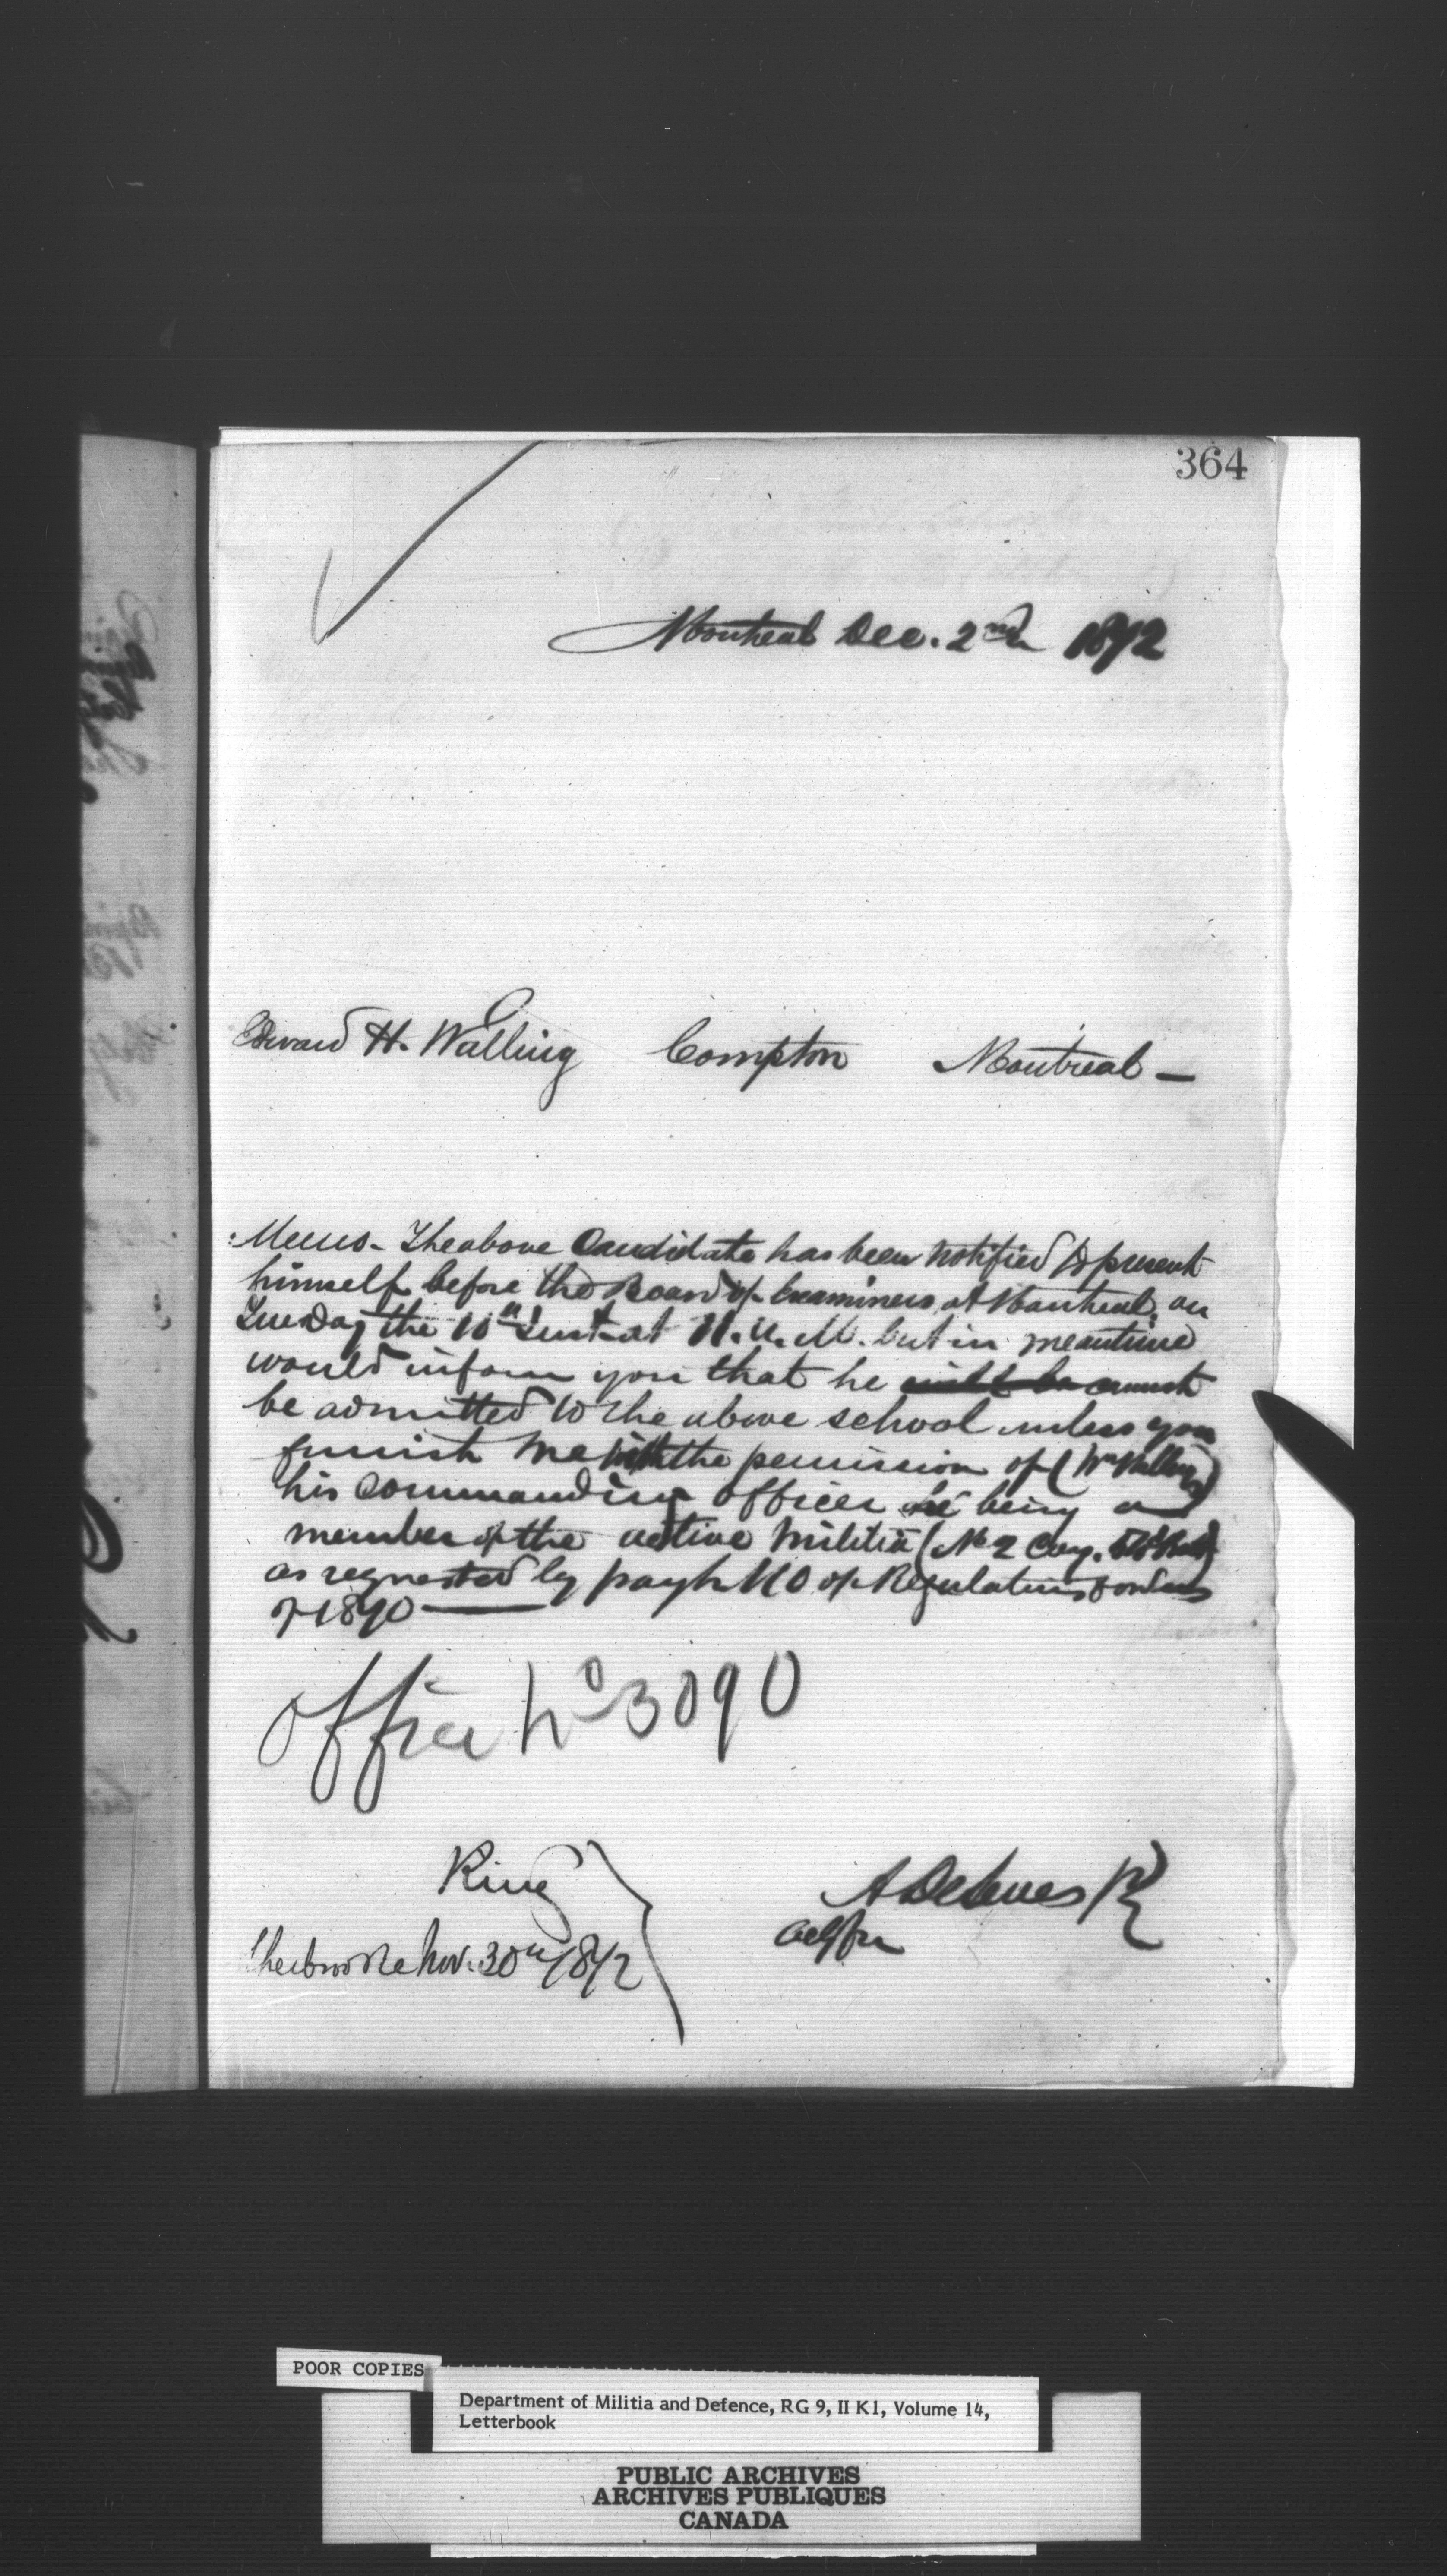 364
Montreal Dec. 2nd 1872
Edward H. Walling Compton Montreal —
Memo - The above Candidate has been notified to present
himself before the Board of Examiners at Montreal, on
Tuesday the 10th Inst at 11. A. M. but in meantime
would inform you that he will be cannot
be admitted to the above school unless you
furnish me with the permission of (Wm Walling)
his Commanding Officer he being a
member of the active Militia (No 2 Coy.
as requested by paγh 110 of Regulations & orders
of 1870 —
Office No 3090
King
Sherbrooke Nov. 30th 1872
POOR COPIES
Department of Militia and Defence, RG 9, II K1, Volume 14,
Letterbook
PUBLIC ARCHIVES
ARCHIVES PUBLIQUES
CANADA